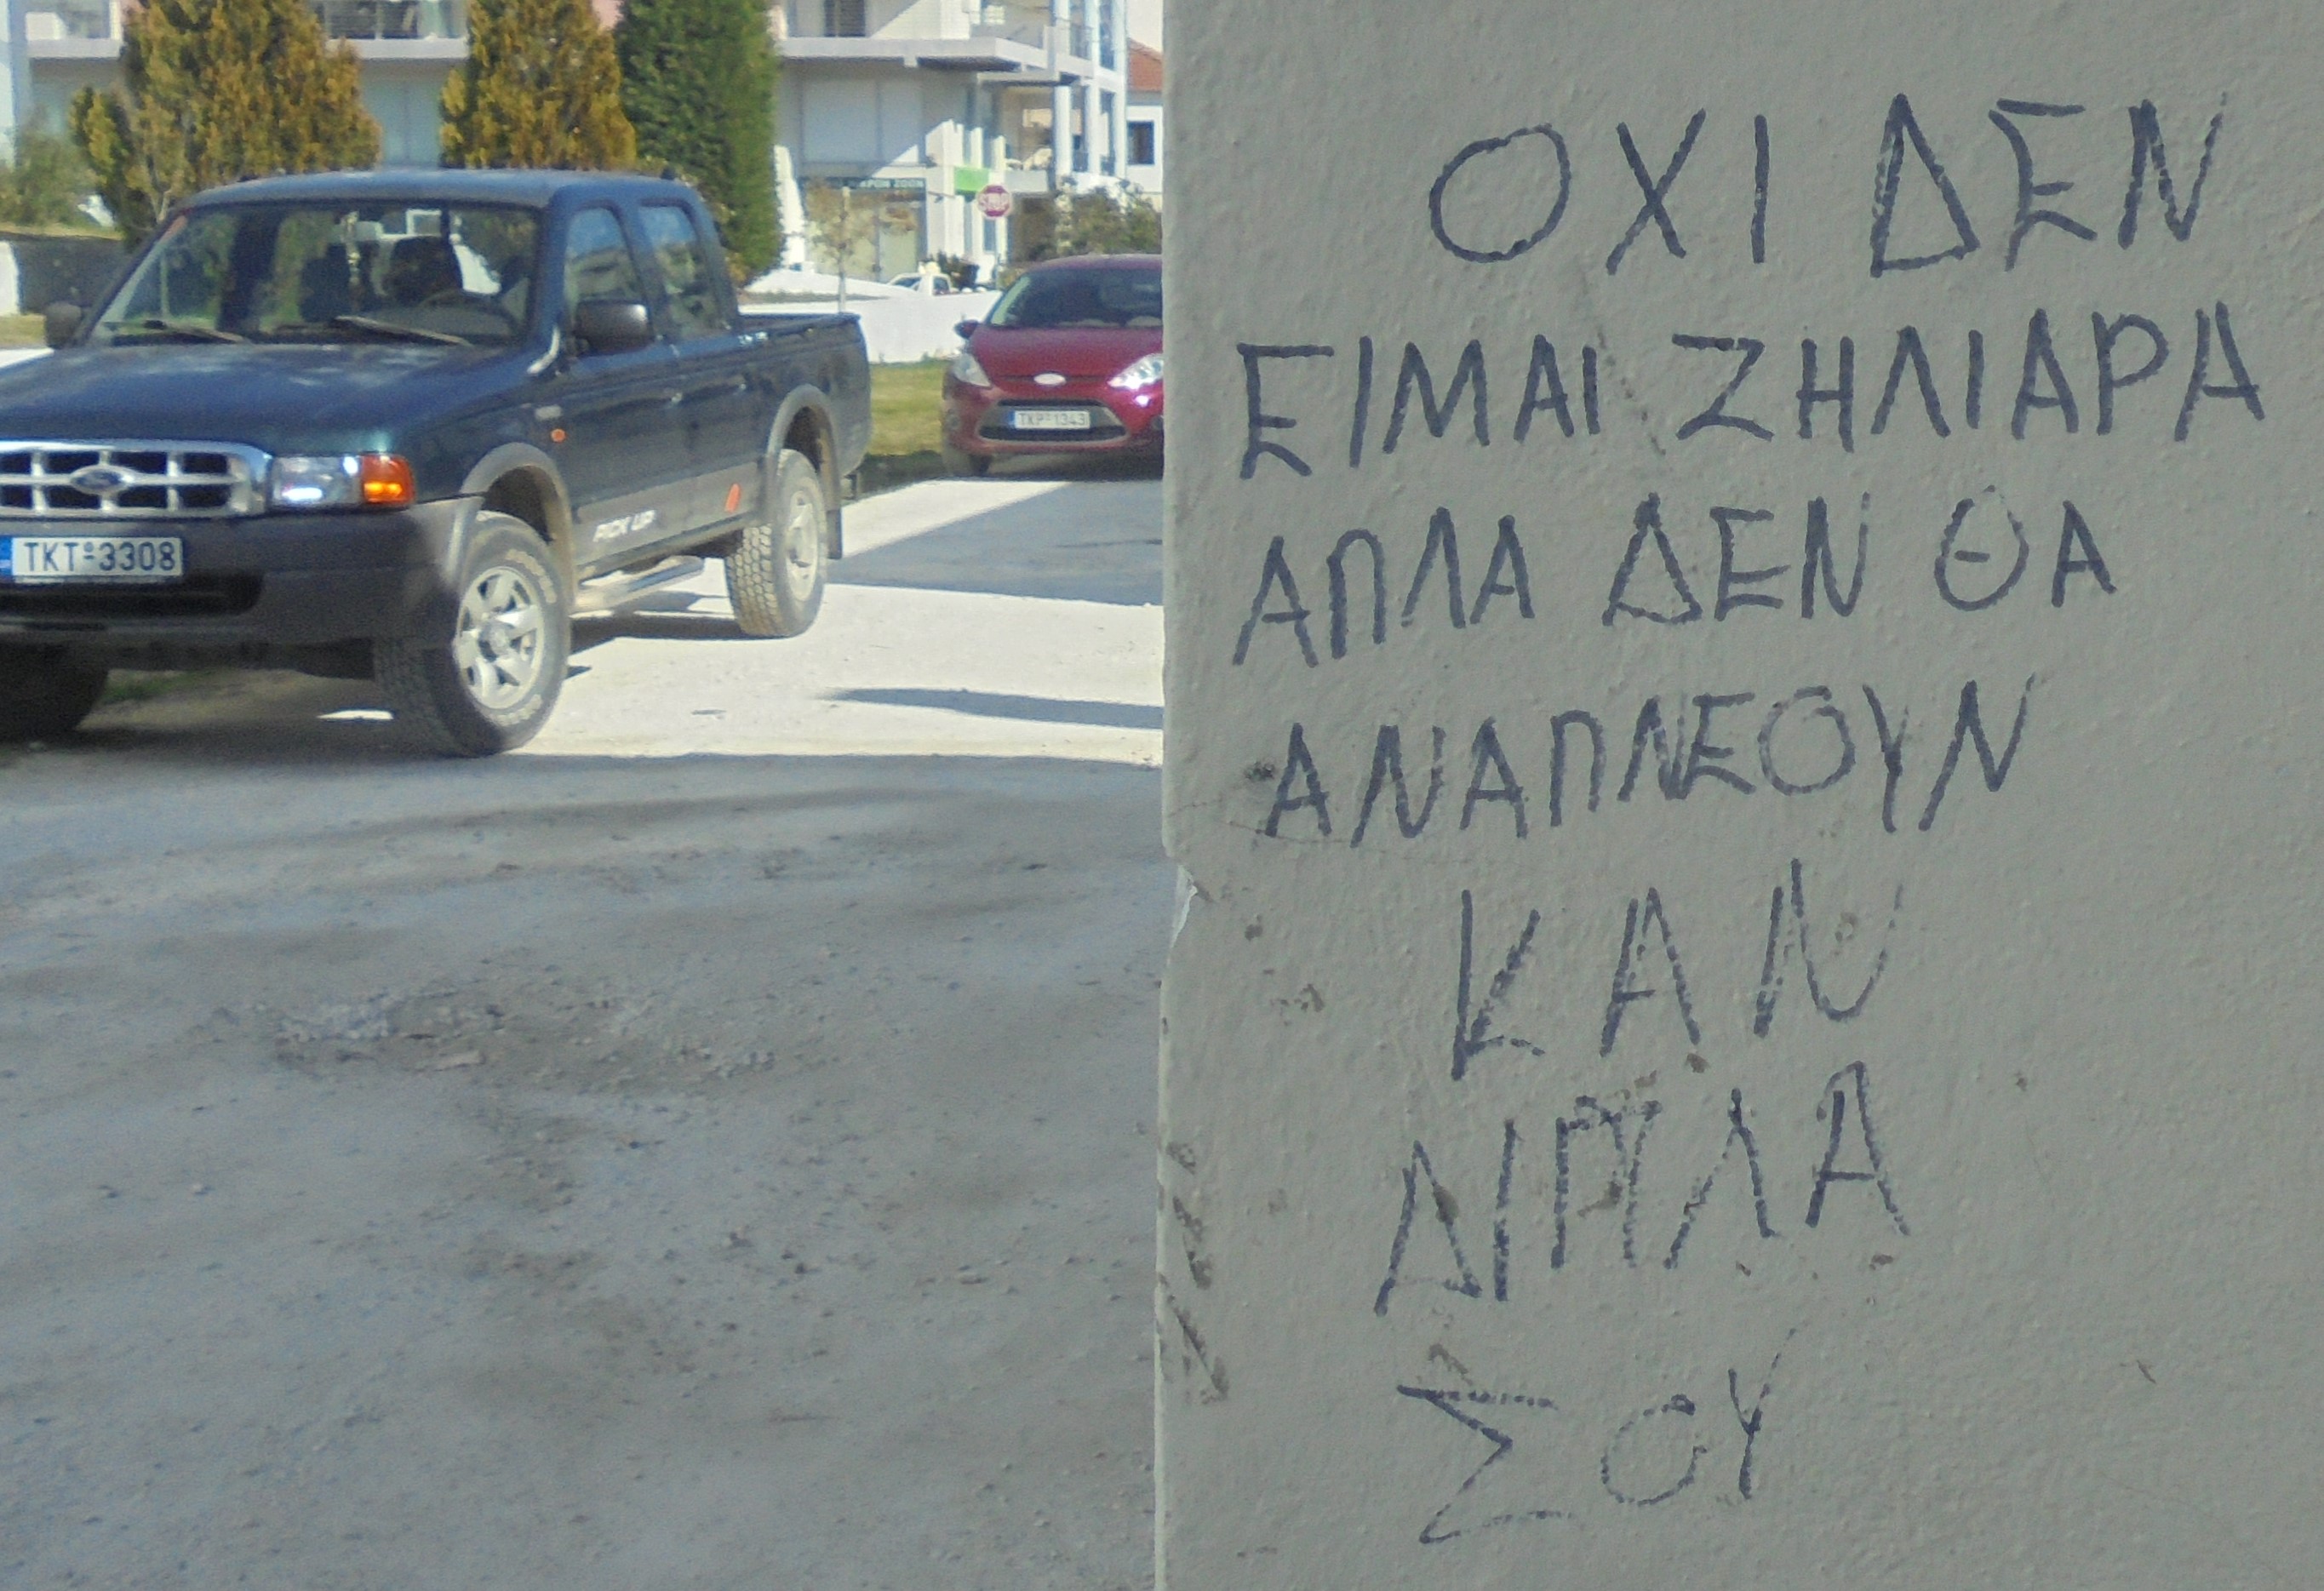 ΟΧΙ ΔΕΝ
ΕΙΜΑΙ ΖΗΛΙΑΡΑ
ΑΠΛΑ ΔΕΝ ΘΑ
ΑΝΑΠΝΕΟΥΝ
ΚΑΝ
ΔΙΠΛΑ
ΣΟΥ
ΤΚΤ-3308
PICK UP
ΤΚΡ-1343
STOP